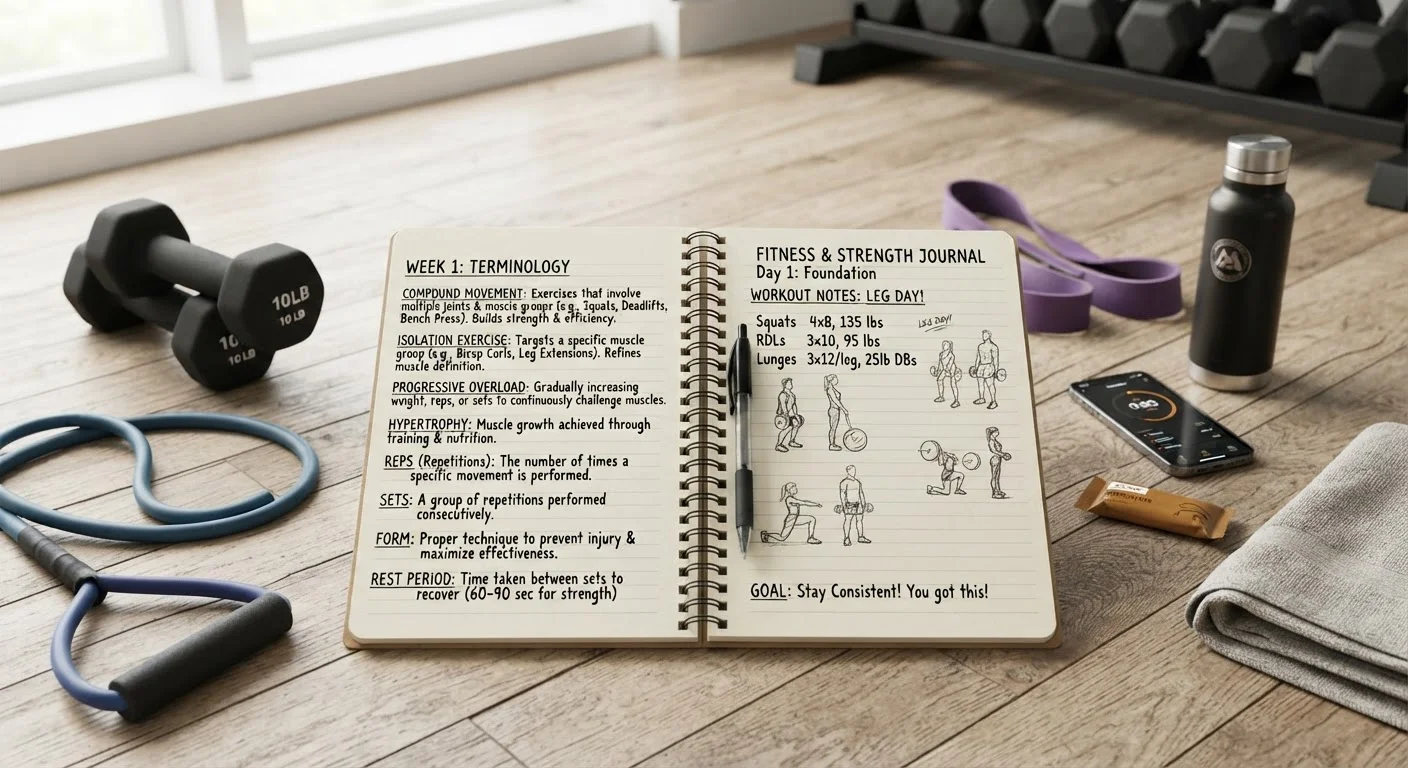 WEEK 1: TERMINOLOGY
COMPOUND MOVEMENT: Exercises that involve
moltiple joints & moscis gronpr (s g., Jquals, Deadlifts,
Bench Press). Builds strength & efficiency.
ISOLATION EXERCISE: Targsts a specific muscle
groop (s g., Bicsp Corls, Leg Extensions). Refines
muscle definition.
PROGRESSIVE OVERLOAD: Gradually increasing
wvight, reps, or sefs to continuously challenge muscles.
HYPERTROPHY: Muscle growth achieved through
training & nutrition.
REPS (Repetitions): The number of times a
specific movement is performed.
SETS: A group of repetitions performed
consecutively.
FORM: Proper technique to prevent injury &
maximize effectiveness.
REST PERIOD: Time taken between sets to
recover (60-90 sec for strength)
FITNESS & STRENGTH JOURNAL
Day 1: Foundation
WORKOUT NOTES: LEG DAY!
Squats 4xB, 135 lbs
RDLs 3x10, 95 lbs
Lunges 3x12/log, 25lb DBs
GOAL: Stay Consistent! You got this!
10LB
10 LB
10 LB